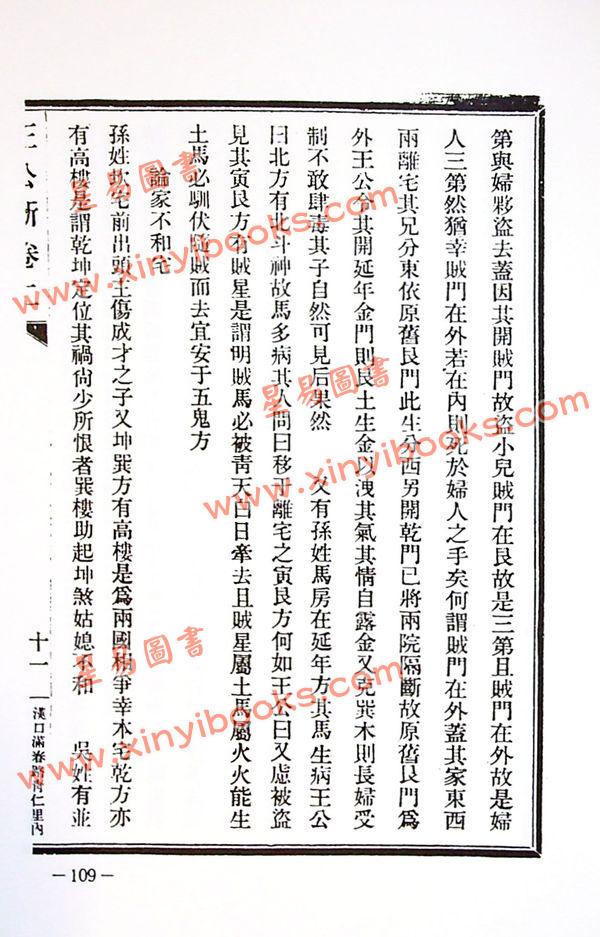 第與婦夥盜去蓋因其開賊門故盜小兒賊門在艮故是三第且賊門在外故是婦
人三第然猶幸賊門在外若在內則死於婦人之手矣何謂賊門在外蓋其家東西
兩離宅其兄分東依原舊艮門此生分西另開乾門已將兩院隔斷故原舊艮門爲
外王公令其開延年金門則艮土生金以洩其氣其情自露金又克巽木則長婦受
制不敢肆毒其子自然可見后果然 又有孫姓馬房在延年方其馬生病王公
曰北方有北斗神故馬多病其人問曰移于離宅之寅艮方何如王公曰又慮被盜
見其寅艮方有賊星是謂明賊馬必被青天白日牽去且賊星屬土馬屬火火能生
土馬必馴伏隨賊而去宜安于五鬼方
論家不和宅
孫姓坎宅前出頭土傷成才之子又坤巽方有高樓是爲兩國相爭幸本宅乾方亦
有高樓是謂乾坤定位其禍尙少所恨者巽樓助起坤煞姑媳不和 吳姓有並
王公斷卷二
十一
漢口滿春路青仁里內
—109—
星易圖書
www.xinyibooks.com
星易圖書
www.xinyibooks.com
星易圖書
www.xinyibooks.com